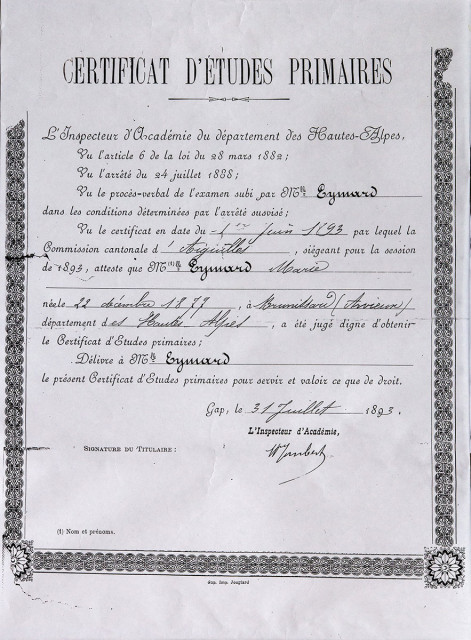 CERTIFICAT D'ÉTUDES PRIMAIRES
L'Inspecteur d'Académie du département des Hautes-Alpes,
Vu l'article 6 de la loi du 28 mars 1882;
Vu l'arrêté du 24 juillet 1888;
Vu le procès-verbal de l'examen subi par Mlle Eymard
dans les conditions déterminées par l'arrêté susvisé;
Vu le certificat en date du 1er juin 1893 par lequel la
Commission cantonale d'Aiguilles, siégeant pour la session
de 1893, atteste que M(1)lle Eymard Marie
née le 22 décembre 1877, à Brunissard (Arvieux)
département des Hautes-Alpes, a été jugé digne d'obtenir
le Certificat d'Etudes primaires;
Délivre à Mlle Eymard
le présent Certificat d'Etudes primaires pour servir et valoir ce que de droit.
Gap, le 31 Juillet 1893.
L'Inspecteur d'Académie,
SIGNATURE DU TITULAIRE:
(1) Nom et prénoms.
Gap, Imp. Jouglard